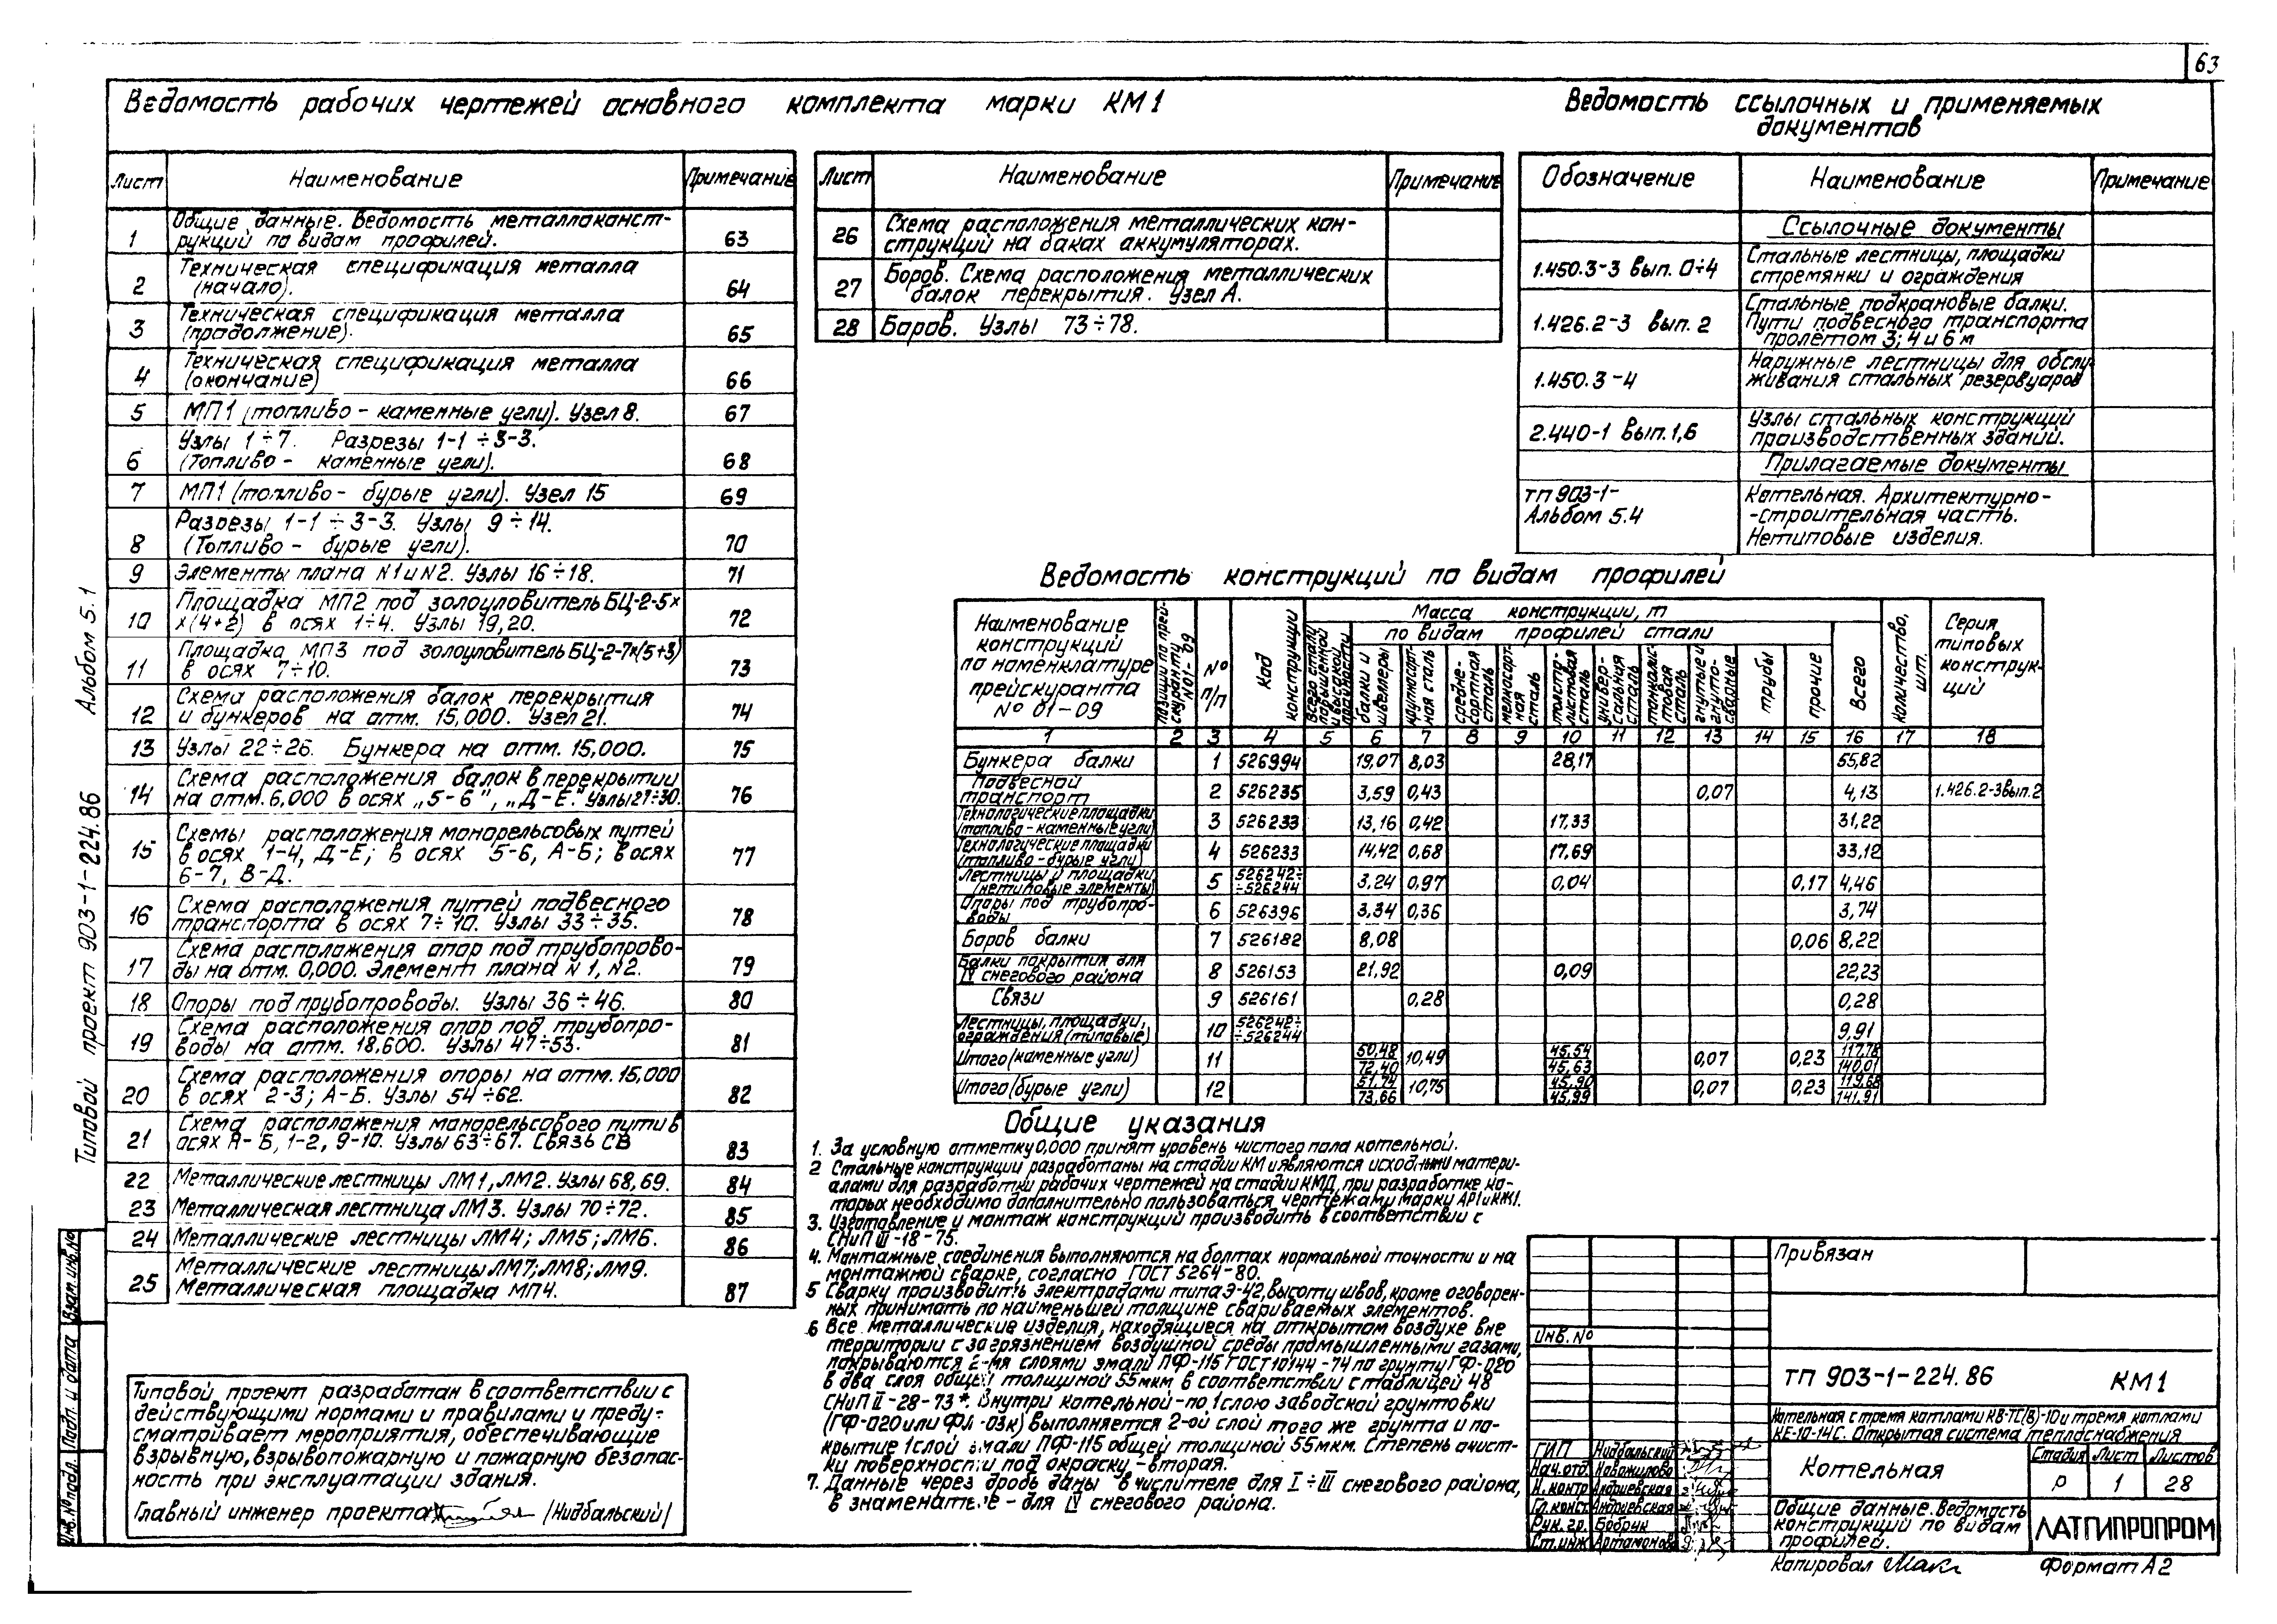 63
Ведомость рабочих чертежей основного комплекта марки КМ1
Лист Наименование Примечание
1 Общие данные. Ведомость металлоконст-
рукций по видам профилей. 63
2 Техническая спецификация металла
(начало). 64
3 Техническая спецификация металла
(продолжение). 65
4 Техническая спецификация металла
(окончание) 66
5 МП1 (топливо - каменные угли). Узел 8. 67
6 Узлы 1÷7. Разрезы 1-1 ÷ 3-3.
(Топливо - каменные угли). 68
7 МП1 (топливо - бурые угли). Узел 15 69
8 Разрезы 1-1 ÷ 3-3. Узлы 9÷14.
(Топливо - бурые угли). 70
9 Элементы плана N1 и N2. Узлы 16÷18. 71
10 Площадка МП2 под золоуловитель БЦ-2-5×
×(4+2) в осях 1÷4. Узлы 19,20. 72
11 Площадка МП3 под золоуловитель БЦ-2-7×(5+3)
в осях 7÷10. 73
12 Схема расположения балок перекрытия
и бункеров на отм. 15,000. Узел 21. 74
13 Узлы 22÷26. Бункера на отм. 15,000. 75
14 Схема расположения балок в перекрытии
на отм. 6,000 в осях „5-6", „Д-Е." Узлы 27÷30. 76
15 Схемы расположения монорельсовых путей
в осях 1-4, Д-Е; в осях 5-6, А-Б; в осях
6-7, В-Д. 77
16 Схема расположения путей подвесного
транспорта в осях 7÷10. Узлы 33÷35. 78
17 Схема расположения опор под трубопрово-
ды на отм. 0,000. Элемент плана N 1, N2. 79
18 Опоры под трубопроводы. Узлы 36÷46. 80
19 Схема расположения опор под трубопро-
воды на отм. 18,600. Узлы 47÷53. 81
20 Схема расположения опоры на отм. 15,000
в осях 2-3; А-Б. Узлы 54÷62. 82
21 Схема расположения монорельсового пути в
осях А-Б, 1-2, 9-10. Узлы 63÷67. Связь СВ 83
22 Металлические лестницы ЛМ1, ЛМ2. Узлы 68,69. 84
23 Металлическая лестница ЛМ3. Узлы 70÷72. 85
24 Металлические лестницы ЛМ4; ЛМ5; ЛМ6. 86
25 Металлические лестницы ЛМ7; ЛМ8; ЛМ9.
Металлическая площадка МП4. 87
Лист Наименование Примечание
26 Схема расположения металлических кон-
струкций на баках аккумуляторах.
27 Боров. Схема расположения металлических
балок перекрытия. Узел А.
28 Боров. Узлы 73÷78.
Ведомость ссылочных и применяемых
документов
Обозначение Наименование Примечание
Ссылочные документы
1.450.3-3 вып. 0÷4 Стальные лестницы, площадки
стремянки и ограждения
1.426.2-3 вып. 2 Стальные подкрановые балки.
Пути подвесного транспорта
пролётом 3; 4 и 6 м
1.450.3-4 Наружные лестницы для обслу-
живания стальных резервуаров
2.440-1 вып. 1,6 Узлы стальных конструкций
производственных зданий.
Прилагаемые документы
ТП 903-1-
Альбом 5.4
Котельная. Архитектурно-
-строительная часть.
Нетиповые изделия.
Ведомость конструкций по видам профилей
Наименование конструкций по номенклатуре прейскуранта № 01-09
Позиции по прей-скуранту №01-09
№ п/п
Код конструкции
Масса конструкции, т
Всего стали повышенной и высокой прочности
по видам профилей стали
балки и швеллеры
крупносорт-ная сталь
средне-сортная сталь
мелкосорт-ная сталь
толсто-листовая сталь
универ-сальная сталь
тонколис-товая сталь
гнутые и гнуто-сварные
трубы
прочие
Всего
Количество, шт.
Серия типовых конструк-ций
1 2 3 4 5 6 7 8 9 10 11 12 13 14 15 16 17 18
Бункера балки 1 526994 19,07 8,03 28,17 55,82
Подвесной транспорт 2 526235 3,59 0,43 0,07 4,13 1.426.2-3 вып.2
Технологические площадки (топливо-каменные угли) 3 526233 13,16 0,42 17,33 31,22
Технологические площадки (топливо-бурые угли) 4 526233 14,42 0,68 17,69 33,12
Лестницы и площадки (нетиповые элементы) 5 526242÷ ÷526244 3,24 0,97 0,04 0,17 4,46
Опоры под трубопро-воды 6 526396 3,34 0,36 3,74
Боров балки 7 526182 8,08 0,06 8,22
Балки покрытия для IV снегового района 8 526153 21,92 0,09 22,23
Связи 9 526161 0,28 0,28
Лестницы, площадки, ограждения (типовые) 10 526242÷ ÷526244 9,91
Итого (каменные угли) 11 50,48/72,40 10,49 45,54/45,63 0,07 0,23 117,78/140,01
Итого (бурые угли) 12 51,74/73,66 10,75 45,90/45,99 0,07 0,23 119,68/141,91
Общие указания
1. За условную отметку 0,000 принят уровень чистого пола котельной.
2 Стальные конструкции разработаны на стадии КМ и являются исходными матери-
алами для разработки рабочих чертежей на стадии КМД, при разработке ко-
торых необходимо дополнительно пользоваться чертежами марки АР1 и КЖ1.
3. Изготовление и монтаж конструкций производить в соответствии с
СНиП III-18-75.
4. Монтажные соединения выполняются на болтах нормальной точности и на
монтажной сварке, согласно ГОСТ 5264-80.
5 Сварку производить электродами типа Э-42, высоту швов, кроме оговорен-
ных принимать по наименьшей толщине свариваемых элементов.
6 Все металлические изделия, находящиеся на открытом воздухе вне
территории с загрязнением воздушной среды промышленными газами,
покрываются 2-мя слоями эмали ПФ-115 ГОСТ 10144-74 по грунту ГФ-020
в два слоя общей толщиной 55мкм в соответствии с таблицей 48
СНиП II-28-73*. Внутри котельной-по 1слою заводской грунтовки
(ГФ-020 или ФЛ-03к) выполняется 2-ой слой того же грунта и по-
крытие 1слой эмали ПФ-115 общей толщиной 55мкм. Степень очист-
ки поверхности под окраску-вторая.
7. Данные через дробь даны в числителе для I÷III снегового района,
в знаменателе - для IV снегового района.
Типовой проект 903-1-224.86 Альбом 5.1
Взам.инв.№
Подп. и дата
Инв.№ подл.
Типовой проект разработан в соответствии с
действующими нормами и правилами и преду-
сматривает мероприятия, обеспечивающие
взрывную, взрывопожарную и пожарную безопас-
ность при эксплуатации здания.
Главный инженер проекта /Нидбальский/
Привязан
Инв. №
ТП 903-1-224.86 КМ1
Котельная с тремя котлами КВ-ТС(В)-10 и тремя котлами
КЕ-10-14С. Открытая система теплоснабжения
ГИП Нидбальский
Нач.отд. Новожилова
Н.контр Андриевская
Гл.конст. Андриевская
Рук.гр. Бобрик
Ст.инж Артамонова
Котельная
Стадия Лист Листов
Р 1 28
Общие данные. Ведомость
конструкций по видам
профилей.
ЛАТГИПРОПРОМ
Копировал
Формат А2